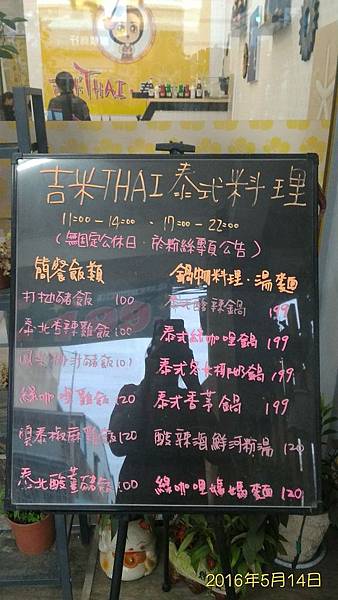 THAI
吉米THAI泰式料理
11:00-14:00 . 17:00-22:00
(無固定公休日,於粉絲專頁公告)
簡餐飯類
打拋豬飯 100
泰北香辣雞飯 100
綠咖哩雞飯 120
椒麻雞飯 120
泰北酸薑豬飯 100
鍋物料理.湯麵
泰式酸辣鍋 199
泰式綠咖哩鍋 199
泰式 鍋 199
泰式香茅鍋 199
酸辣海鮮河粉湯 120
綠咖哩媽媽麵 120
2016年5月14日